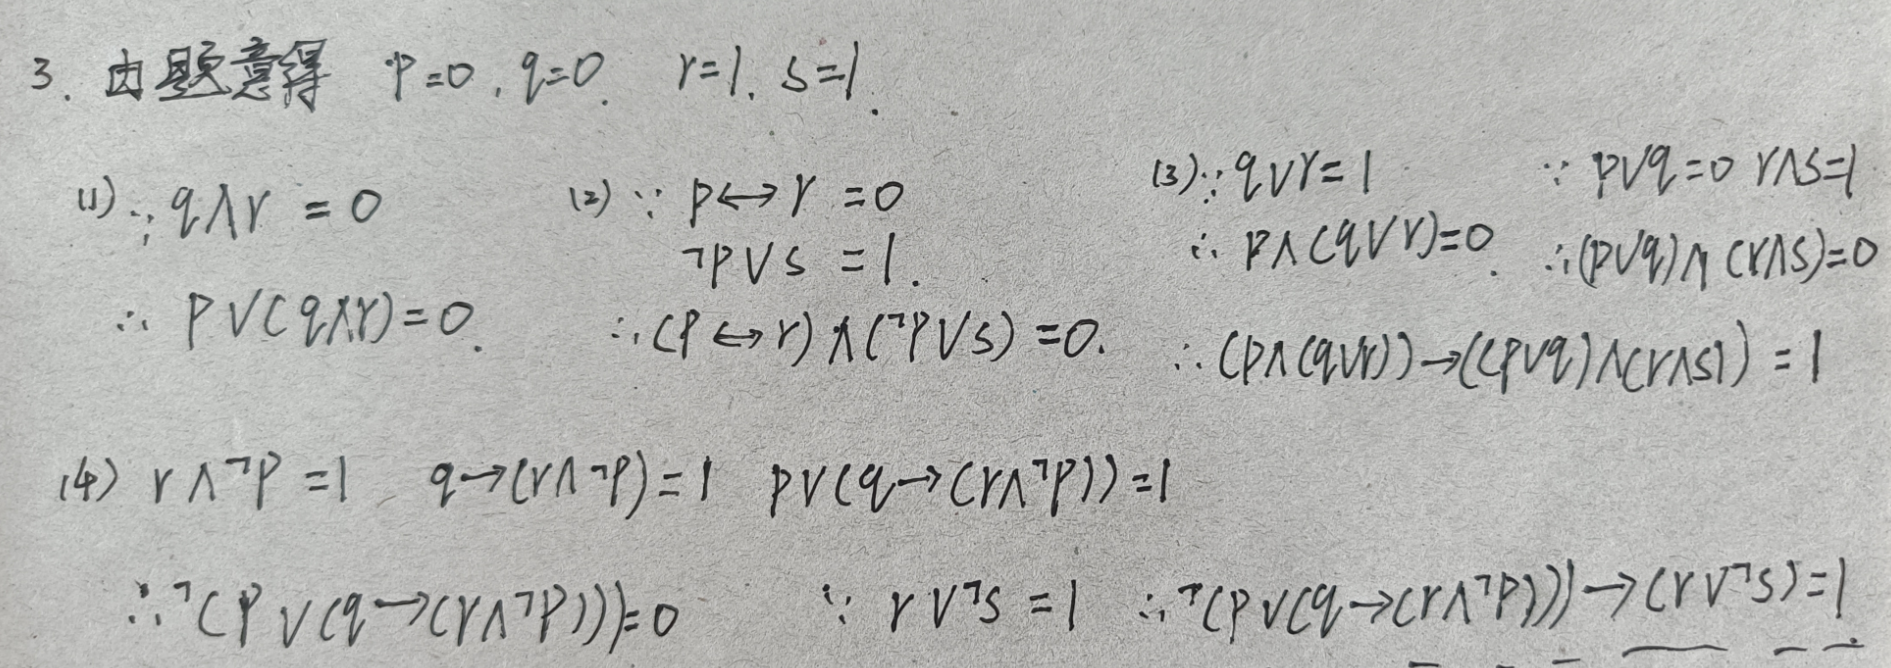 3. 由题意得 p=0, q=0. r=1. s=1.
(1) ∵ q∧r = 0
∴ p∨(q∧r)=0.
(2) ∵ p↔r =0
¬p∨s =1.
∴(p↔r)∧(¬p∨s)=0.
(3) ∵ q∨r=1
∴ p∧(q∨r)=0.
∵ p∨q=0 r∧s=1
∴(p∨q)∧(r∧s)=0
∴(p∧(q∨r))→((p∨q)∧(r∧s))=1
(4) r∧¬p=1 q→(r∧¬p)=1 p∨(q→(r∧¬p))=1
∴¬(p∨(q→(r∧¬p)))=0 ∵ r∨¬s=1 ∴¬(p∨(q→(r∧¬p)))→(r∨¬s)=1